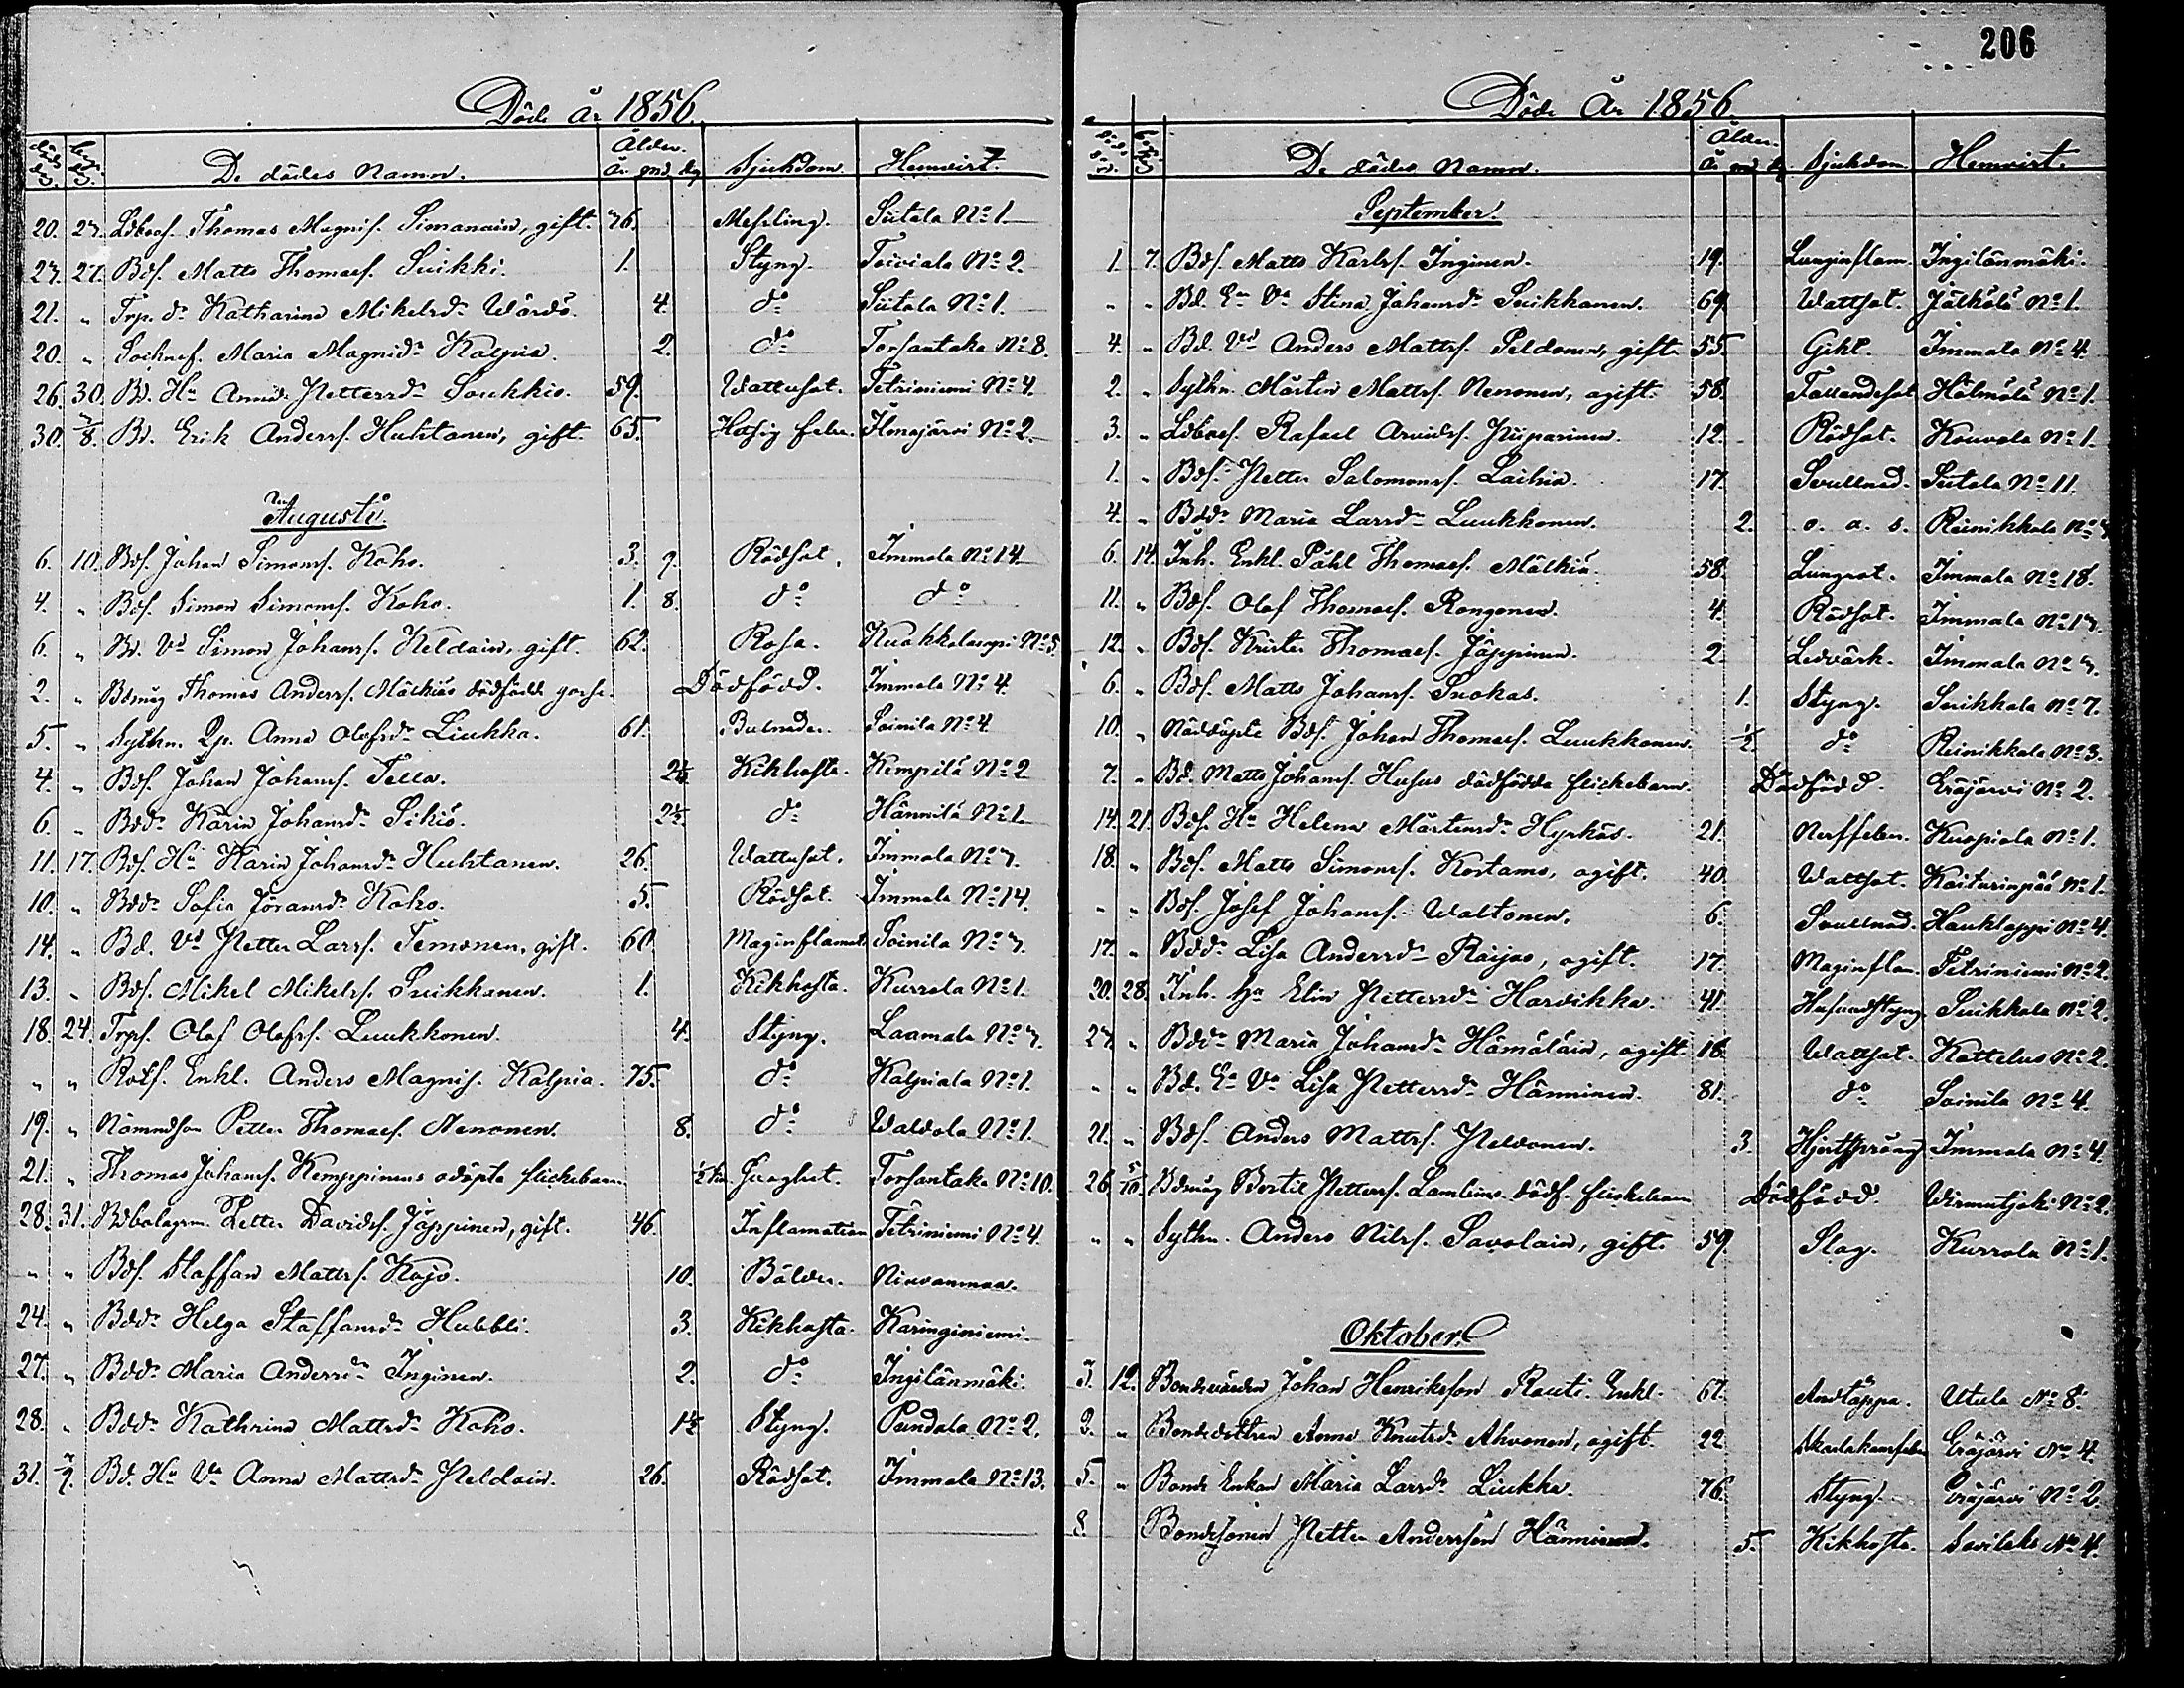 206
Döde år 1856.
De dödes Namn. Ålder. år md dg Sjukdom Hemvist.
20. 27. Ldbof. Thomas Magnif. Simanain, gift. 76. Messling. Siitala No 1.
27. 27. Bdf. Matts Thomasf. Suikki. 1. Styng. Toiviala No 2.
21. " Trp. dr Katharina Mikelsdr Wårdö. 4. do Siitala No 1.
20. " Maria Magnidr Kalpia. 2. do Torsantaka No 8.
26. 30. Bd. Hu Anna Petterdr Soukkio. 59. Wattusot. Tetriniemi No 4.
30. 3/8. Bd. Erik Andersf. Huhtanen, gift. 65. Hetsig feber. Ilmajärvi No 2.
Augusti.
6. 10. Bdf. Johan Simonsf. Koho. 3. 9. Rödsot. Immala No 14
4. " Bdf. Simon Simonsf. Koho. 1. 8. do do
6. " Bd. Vd Simon Johansf. Peldain, gift. 62. Rosa. No 5.
2. " Bdmåg Thomas Andersf. Mälkiäs dödfödde gosse. Dödfödd. Immala No 4.
5. " Sythn. Anna Olofsdr Liukka. 61. Bulnader. Soinila No 4
4. " Bdf. Johan Johansf. Tella. 2½. Kikhosta. Kempilä No 2
6. " Bddr Karin Johansdr Sikiö. 2½. do Hännilä No 1.
11. 17. Bdf. Hu Karin Johansdr Huhtanen. 26. Wattusot. Immala No 7.
10. " Bddr Sofia Jöransdr Koho. 5. Rödsot. Immala No 14.
14. " Bd. Vd Petter Larsf. Temonen, gift. 60. Maginflamat. Soinila No 7.
13. " Bdf. Mikel Mikelsf. Suikkanen. 1. Kikhosta. Kurrola No 1.
18. 24. Trpf. Olof Olofsf. Luukkonen. 4. Styng. Laamala No 7.
" " Rotf. Enkl. Anders Magnif. Kalpia. 75. do Kalpiala No 1.
19. " Nämndson Petter Thomasf. Nenonen. 8. do Waldola No 1.
21. " Thomas Johansf. Kemppinens odöpta flickebarn. ½ tim. Torsantaka No 10.
28. 31. Bdbolagsm. Petter Davidsf. Jäppinen, gift. 46. Inflamation Tetriniemi No 4.
" " Bdf. Staffan Mattsf. Kojo. 10. Bölder. Niuvanmaa.
24. " Bddr Helga Staffansdr Hubbli. 3. Kikhosta. Karinginiemi.
27. " Bddr Maria Andersdr Inginen. 2. do Ingilänmäki.
28. " Bddr Kathrina Mattsdr Koho. 1½ Styng. Pundala No 2.
31. 7/9. Bd. Hu Va Anna Mattsdr Peldain. 26. Rödsot. Immala No 13.
Döde År 1856.
De dödes Namn. Ålder. år md dg Sjukdom. Hemvist.
September.
1. 7. Bdf. Matts Karlsf. Inginen. 19. Lunginflam. Ingilänmäki.
" " Bd. En Va Stina Johansdr Suikkanen. 69. Wattsot. Jälkölä No 1.
4. " Bd. Vd Anders Mattsf. Peldonen, gift. 55. Gikt. Immala No 4.
2. " Sythn. Mårten Mattsf. Nenonen, ogift. 58. Fallandesot Hölmölä No 1.
3. " Ldbosf. Rafael Arvidsf. Piiparinen. 12. Rödsot. Kouvola No 1.
1. " Bdf. Petter Salomonsf. Laihia. 17. Svullnad. Siitola No 11.
4. " Bddr Maria Larsdr Luukkonen. 2. o. a. s. Reinikkala No 7
6. 14. Inh. Enkl. Påhl Thomasf. Mälkiä. 58. Lungsot. Immala No 18.
11. " Bdf. Olof Thomasf. Rongonen. 4. Rödsot. Immala No 17.
12. " Bdf. Krister Thomasf. Jäppinen. 2. Ledvärk. Immala No 7.
6. " Bdf. Matts Johansf. Suokas. 1. Styng. Suikkala No 7.
10. " Nöddöpte Bdf. Johan Thomasf. Luukkonen. ½. do Reinikkala No 3.
7. " Bd. Matts Johansf. Husus dödfödda flickebarn. Dödfödd. Eräjärvi No 2.
14. 21. Bdf. Hu Helena Mårtensdr Hyrkäs. 21. Nerffeber. Kuopiola No 1.
18. " Bdf. Matts Simonsf. Kostamo, ogift. 40. Wattsot. Kaiturinpää No 1.
" " Bdf. Josef Johansf. Waltonen. 6. Svullnad. Hauklappi No 4.
17. " Bddr Lisa Andersdr Raijas, ogift. 17. Maginflam. Tetriniemi No 2.
20. 28. Inh. Hu Elin Pettersdr Harvikka. 41. Hufvudstyng. Suikkala No 2.
27. " Bddr Maria Johansdr Hämäläin, ogift. 18. Wattsot. Kattelus No 2.
" " Bd. En Va Lisa Pettersdr Hänninen. 81. do Soinila No 4.
21. " Bdf. Anders Mattsf. Peldonen. 3. Hjertsprång Immala No 4.
26. 5/10. Bdmåg Bertil Pettersf. dödf. flickebarn Dödfödd. Virmutjoki No 2.
" " Sythn. Anders Nilsf. Savolain, gift. 59. Slag. Kurrola No 1.
Oktober.
3. 12. Bondevärden Johan Henriksson Rauti. Enkl. 67. Andtäppa. Utula No 8.
2. " Bondedottren Anna Knutsdr Ahvonen, ogift. 22. Skarlakansfeber Eräjärvi No 4.
5. " Bonde Enkan Maria Larsdr Liukka. 76. Styng. Eräjärvi No 2.
8. Bondesonen Petter Andersson Hänninen. 5. Kikhosta. Savilaks No 4.